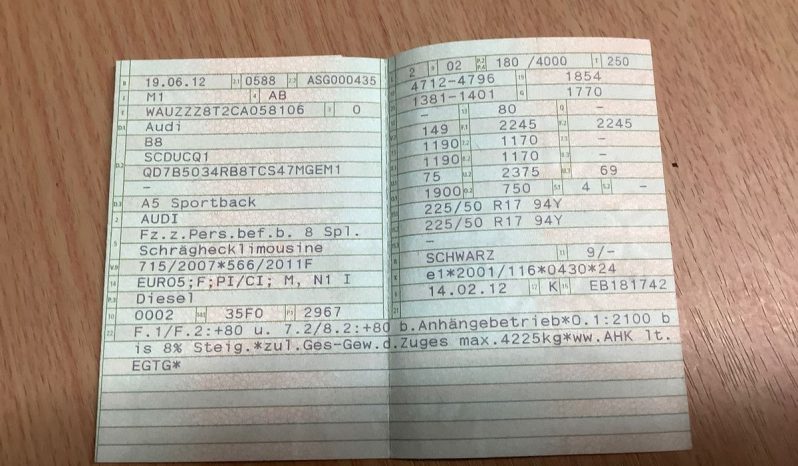 B 19.06.12 2.1 0588 2.2 ASG000435
J M1 4 AB
E WAUZZZ8T2CA058106 3 0
D.1 Audi
B8
D.2 SCDUCQ1
QD7B5O34RB8TCS47MGEM1
–
D.3 A5 Sportback
2 AUDI
5 Fz.z.Pers.bef.b. 8 Spl.
Schräghecklimousine
V.9 715/2007*566/2011F
14 EURO5;F;PI/CI; M, N1 I
P.3 Diesel
10 0002 14.1 35F0 P.1 2967
L 2 9 02 P.2 P.4 180 /4000 T 250
18 4712-4796 19 1854
20 1381-1401 G 1770
– 13 80 Q –
149 F.1 2245 F.2 2245
1190 7.2 1170 7.3 –
1190 8.2 1170 8.3 –
75 U.2 2375 U.3 69
1900 O.2 750 S.1 4 S.2 –
225/50 R17 94Y
225/50 R17 94Y
–
R SCHWARZ 11 9/–
K e1*2001/116*0430*24
6 14.02.12 17 K 16 EB181742
21
22 F.1/F.2:+80 u. 7.2/8.2:+80 b.Anhängebetrieb*O.1:2100 b
is 8% Steig.*zul.Ges-Gew.d.Zuges max.4225kg*ww.AHK lt.
EGTG*